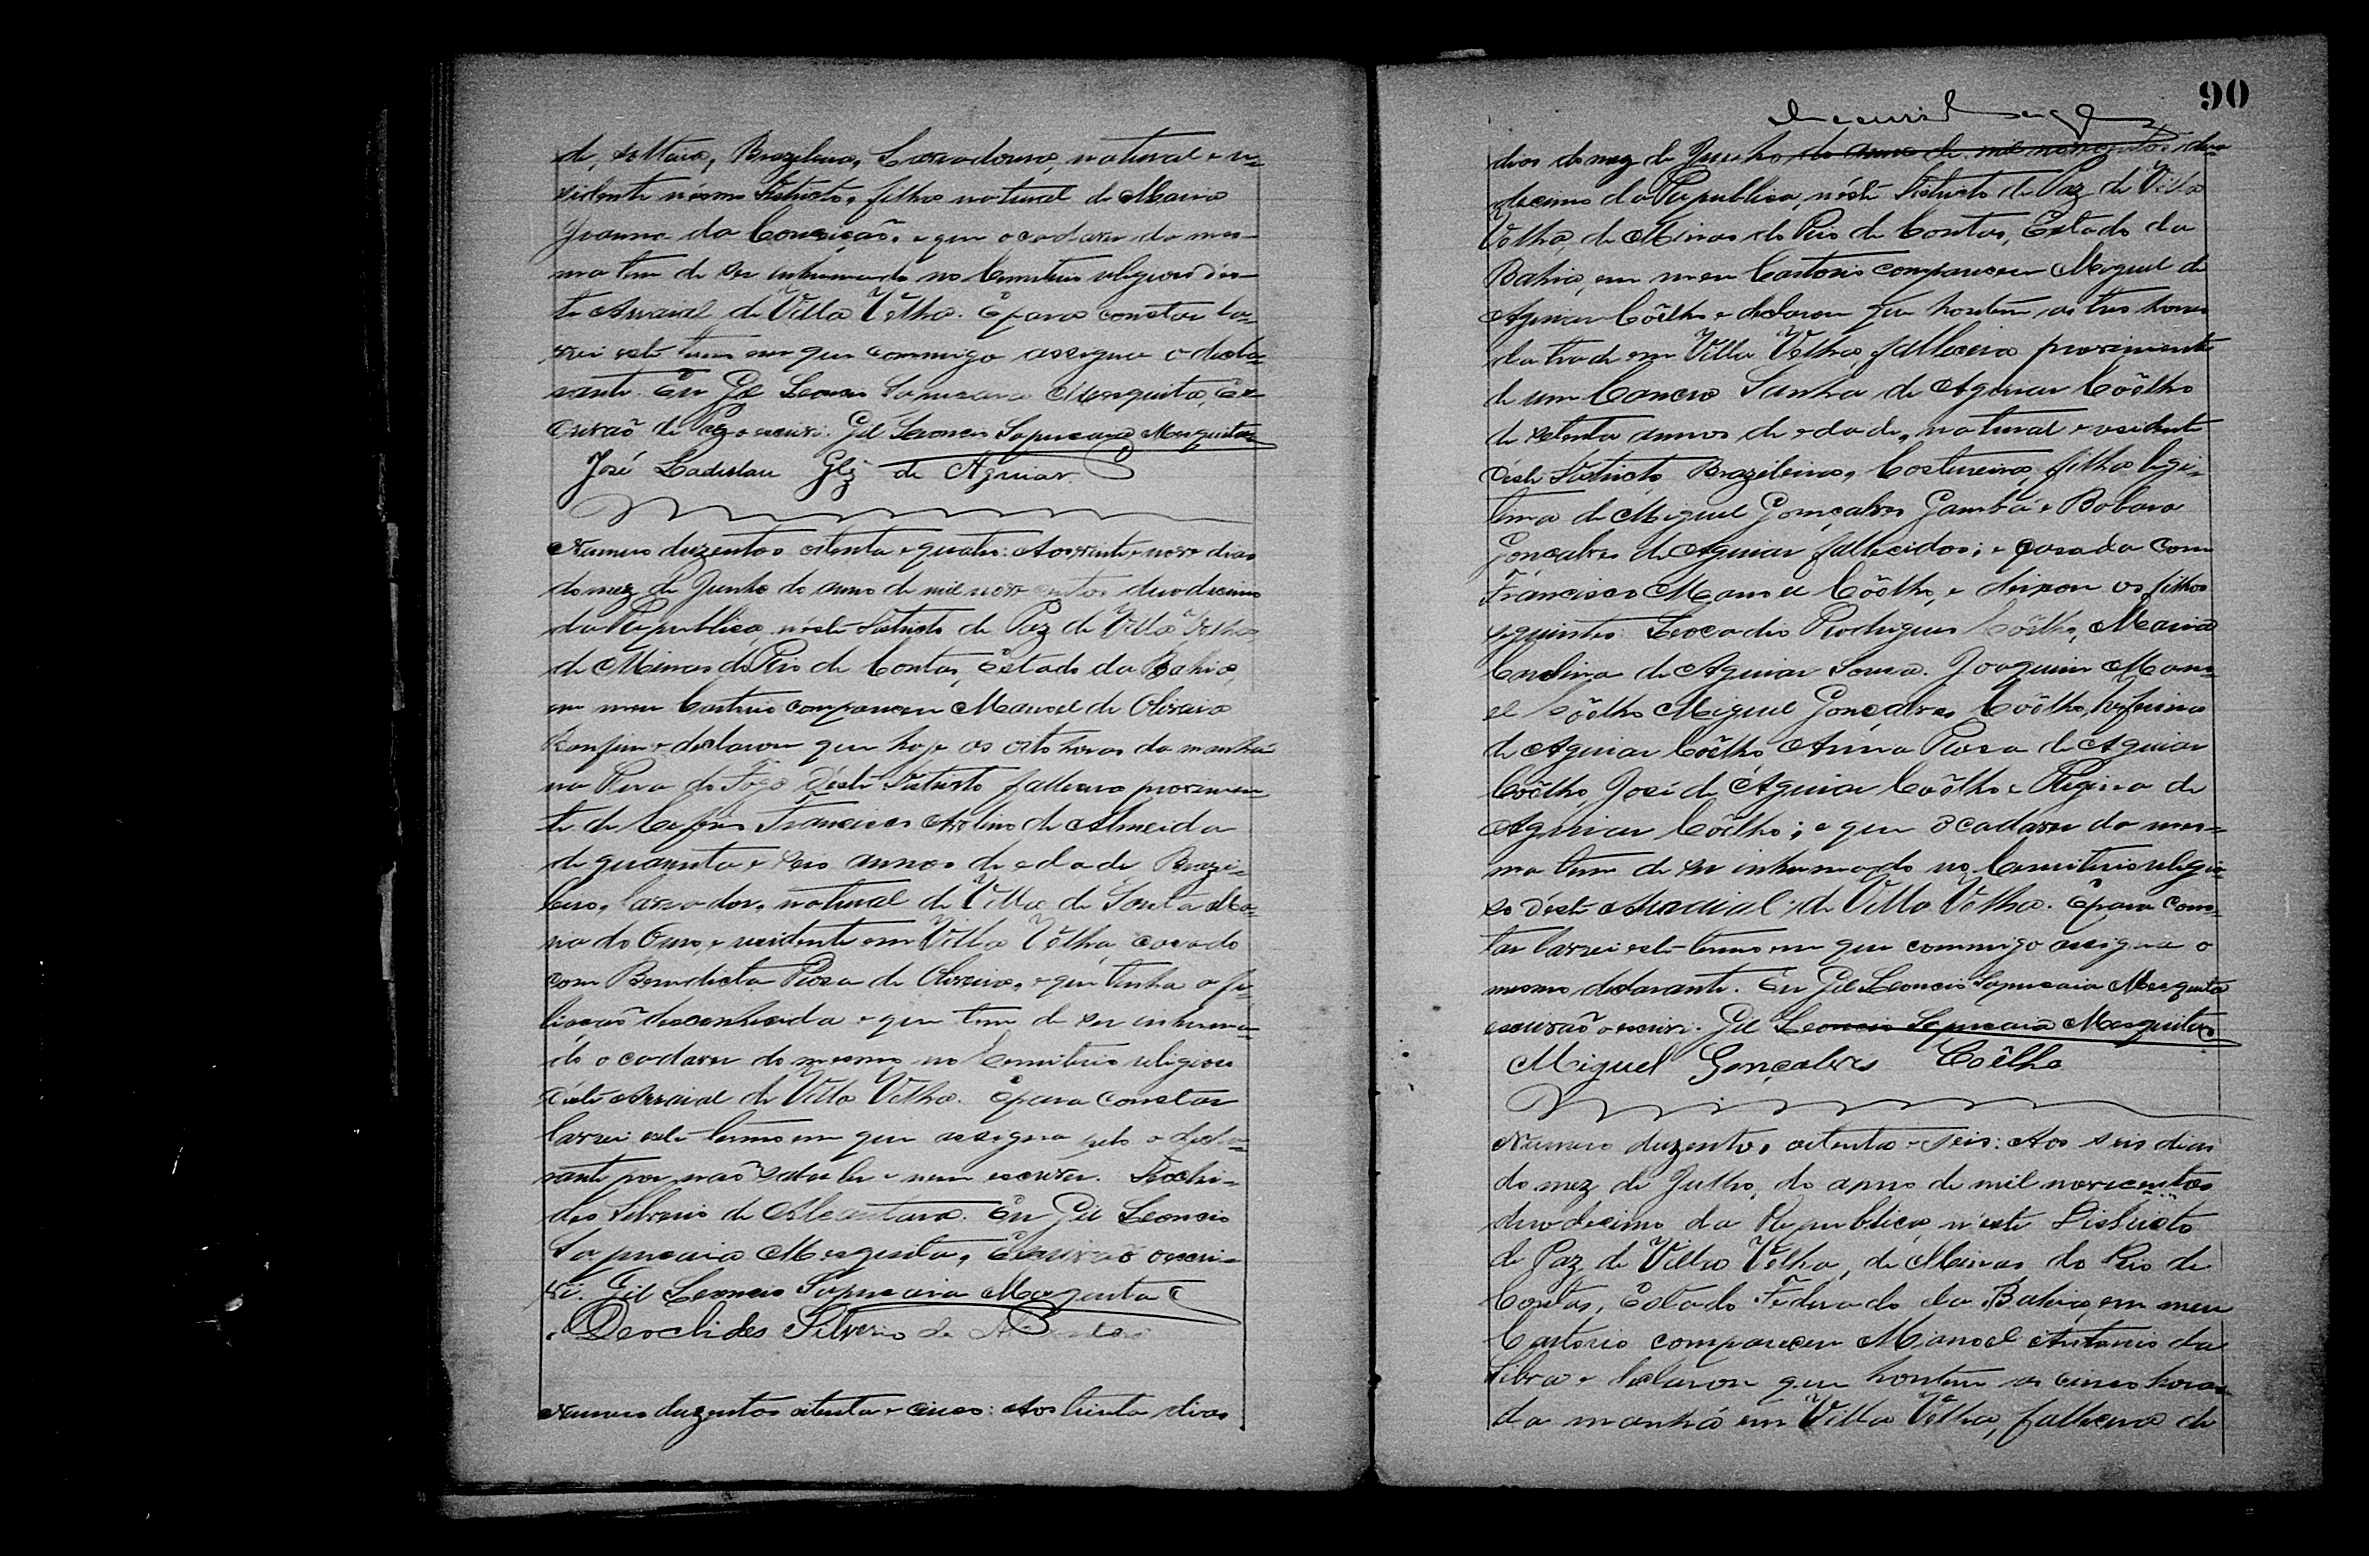 de, solteira, Brazileira, Lavradoura, natural e re-
sidente n'ésmo Districto, filha natural de Maria
Joanna da Conceição, e que o cadaver da mes-
ma tem de ser inhumado no Cemiterio religioso dés-
te Arraial de Villa Velha. E para constar la-
vrei este termo em que commigo assigna o decla-
rante. Eu Gil Leoncio Sapucaia Mesquita, Es-
crivaõ de Paz o escrivi. Gil Leoncio Sapucaia Mesquita
José Ladislau Glz de Aguiar.
Numero duzentos oitenta e quatro: Aos vinte e nove dias
do mez de Junho do anno de mil nove centos duodecimo
da Republica, n'éste Districto de Paz de Villa Velha
de Minas do Rio de Contas, Estado da Bahia,
em meu Cartorio compareceu Manoel de Oliveira
Bonfim e declarou que hoje as oito horas da manhã
na do Fogo d'éste Districto falleceu provenien-
te de Francisco de Almeida
de quarenta e seis annos de edade Brazi-
leiro, lavrador, natural de Villa de Santa Ma-
ria do Ouro, e residente em Villa Velha, casado
com Benedicta Rosa de Oliveira, e que tinha a fi-
liaçaõ desconhecida e que tem de ser inhuma-
do o cadaver do mesmo no Cemiterio religioso
d'éste Arraial de Villa Velha. E para constar
lavrei este termo em que assigna pelo o decla-
rante por naõ saber ler e nem escrever. Deocli-
des Silverio de Alcantara. Eu Gil Leoncio
Sapucaia Mesquita, Escrivaõ o escri-
vi. Gil Leoncio Sapucaia Mesquita
Deoclides Silverio de
Numero duzentos oitenta e cinco: Aos trinta dias
90
dias do mez de Junho do anno de mil novecentos duo-
decimo da Republica, n'éste Districto de Paz de Villa
Velha, de Minas do Rio de Contas, Estado da
Bahia, em meu Cartorio compareceu Miguel de
Aguiar Coêlho e declarou que hontem as tres horas
da tarde em Villa Velha, fallecera proveniente
de um Cancro de Aguiar Coêlho
de setenta annos de edade, natural e residente
d'éste Districto, Brazileira, Costureira, filha legi-
tima de Miguel Gonçalves Gambá e Babara
Gonçalves de Aguiar fallecidos; e casada com
Francisco Manoel Coêlho, e deixou os filhos
seguintes: Leocadio Rodrigues Coêlho, Maria
Carolina de Aguiar Sousa. Joaquim Mano-
el Coêlho Miguel Gonçalves Coêlho,
de Aguiar Coêlho Anna Rosa de Aguiar
Coêlho, José de Aguiar Coêlho e Regina de
Aguiar Coêlho; e que o cadaver da mes-
ma tem de ser inhumado no Cemiterio religio-
so d'éste Arraial de Villa Velha. E para cons-
tar lavrei este termo em que commigo assigna o
mesmo declarante. Eu Gil Leoncio Sapucaia Mesquita
escrivaõ o escrivi. Gil Leoncio Sapucaia Mesquita
Miguel Gonçalves Coêlho
Numero duzentos oitenta e seis: Aos seis dias
do mez de Julho, do anno de mil novecentos
duodecimo da Republica, n'este Districto
de Paz de Villa Velha, de Minas do Rio de
Contas, Estado Federado da Bahia, em meu
Cartorio compareceu Manoel Antonio da
Silva e declarou que hontem as cinco horas
da manhã em Villa Velha, fallecera de